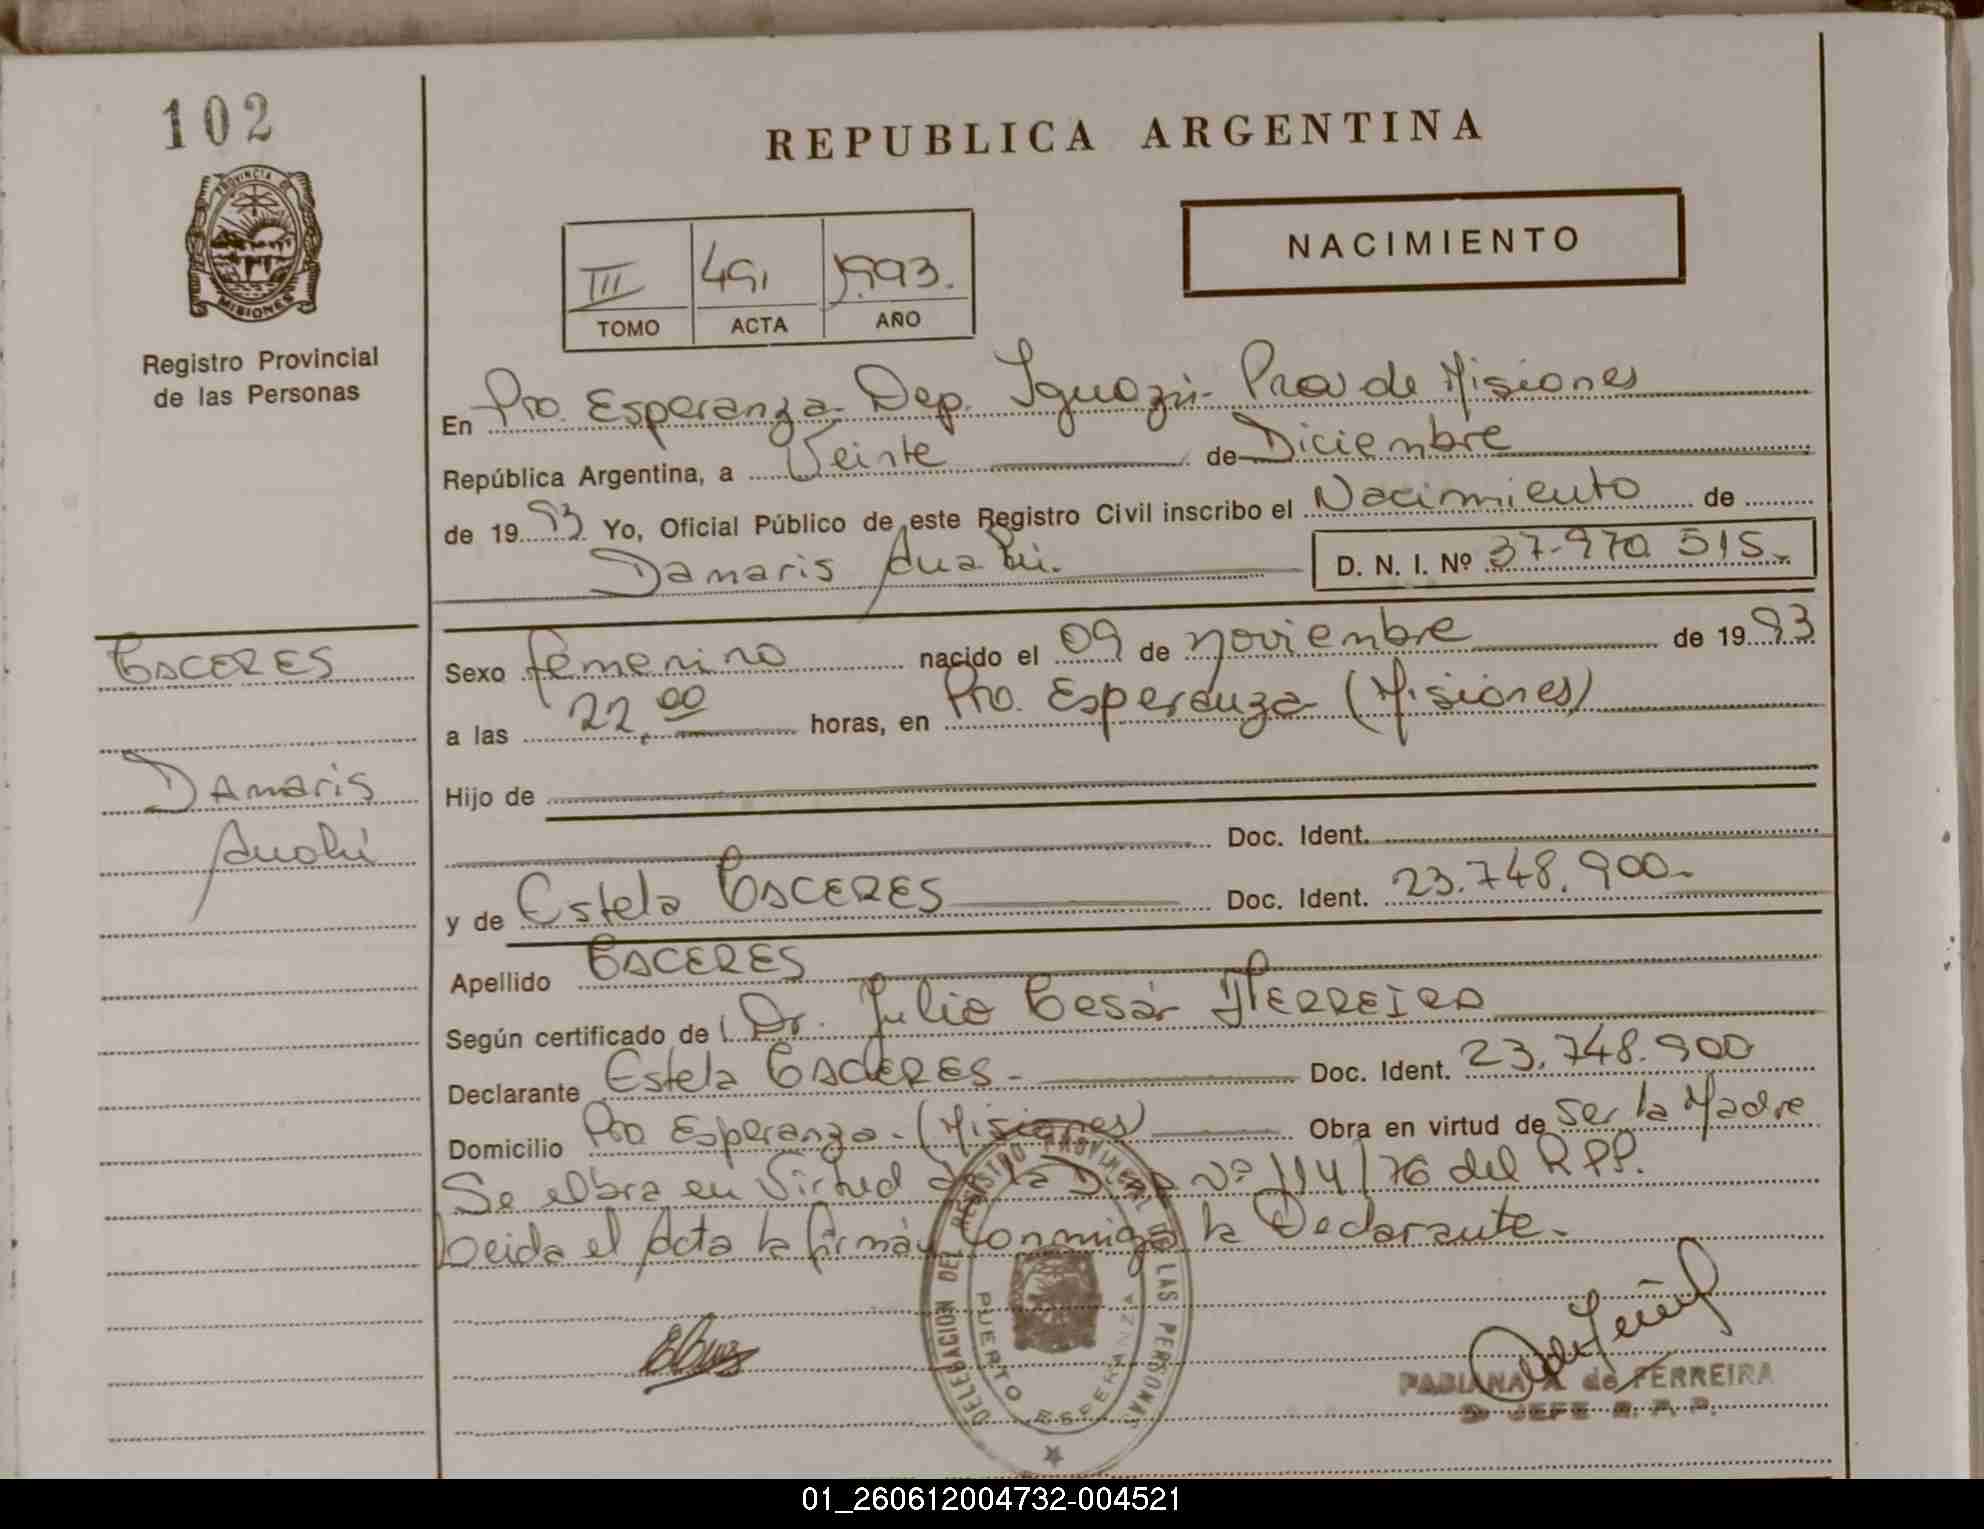 102
PROVINCIA DE
MISIONES
Registro Provincial
de las Personas
REPUBLICA ARGENTINA
NACIMIENTO
III 491 1993.
TOMO ACTA AÑO
En Pto. Esperanza - Dep. Iguazú - Prov de Misiones
República Argentina, a Veinte de Diciembre
de 1993 Yo, Oficial Público de este Registro Civil inscribo el Nacimiento de
Damaris Anahi. D. N. I. Nº 37.970 515
Sexo femenino nacido el 09 de noviembre de 1993
a las 22,00 horas, en Pto. Esperanza (Misiones)
Hijo de
Doc. Ident.
y de Estela CACERES Doc. Ident. 23.748.900.
Apellido CACERES
Según certificado de l. Dr. Julio Cesár FERREIRA
Declarante Estela CACERES - Doc. Ident. 23.748.900
Domicilio Pto Esperanza - (Misiones) Obra en virtud de ser la Madre
Se labra en Virtud de la Disp Nº 114/76 del R.P.P.
Leida el Acta la firmán conmigo la Declarante.
CACERES
Damaris
Anahí
DELEGACION DEL REGISTRO PROVINCIAL DE LAS PERSONAS
PUERTO ESPERANZA
FABIANA A de FERREIRA
JEFE R. P. P.
01_260612004732-004521